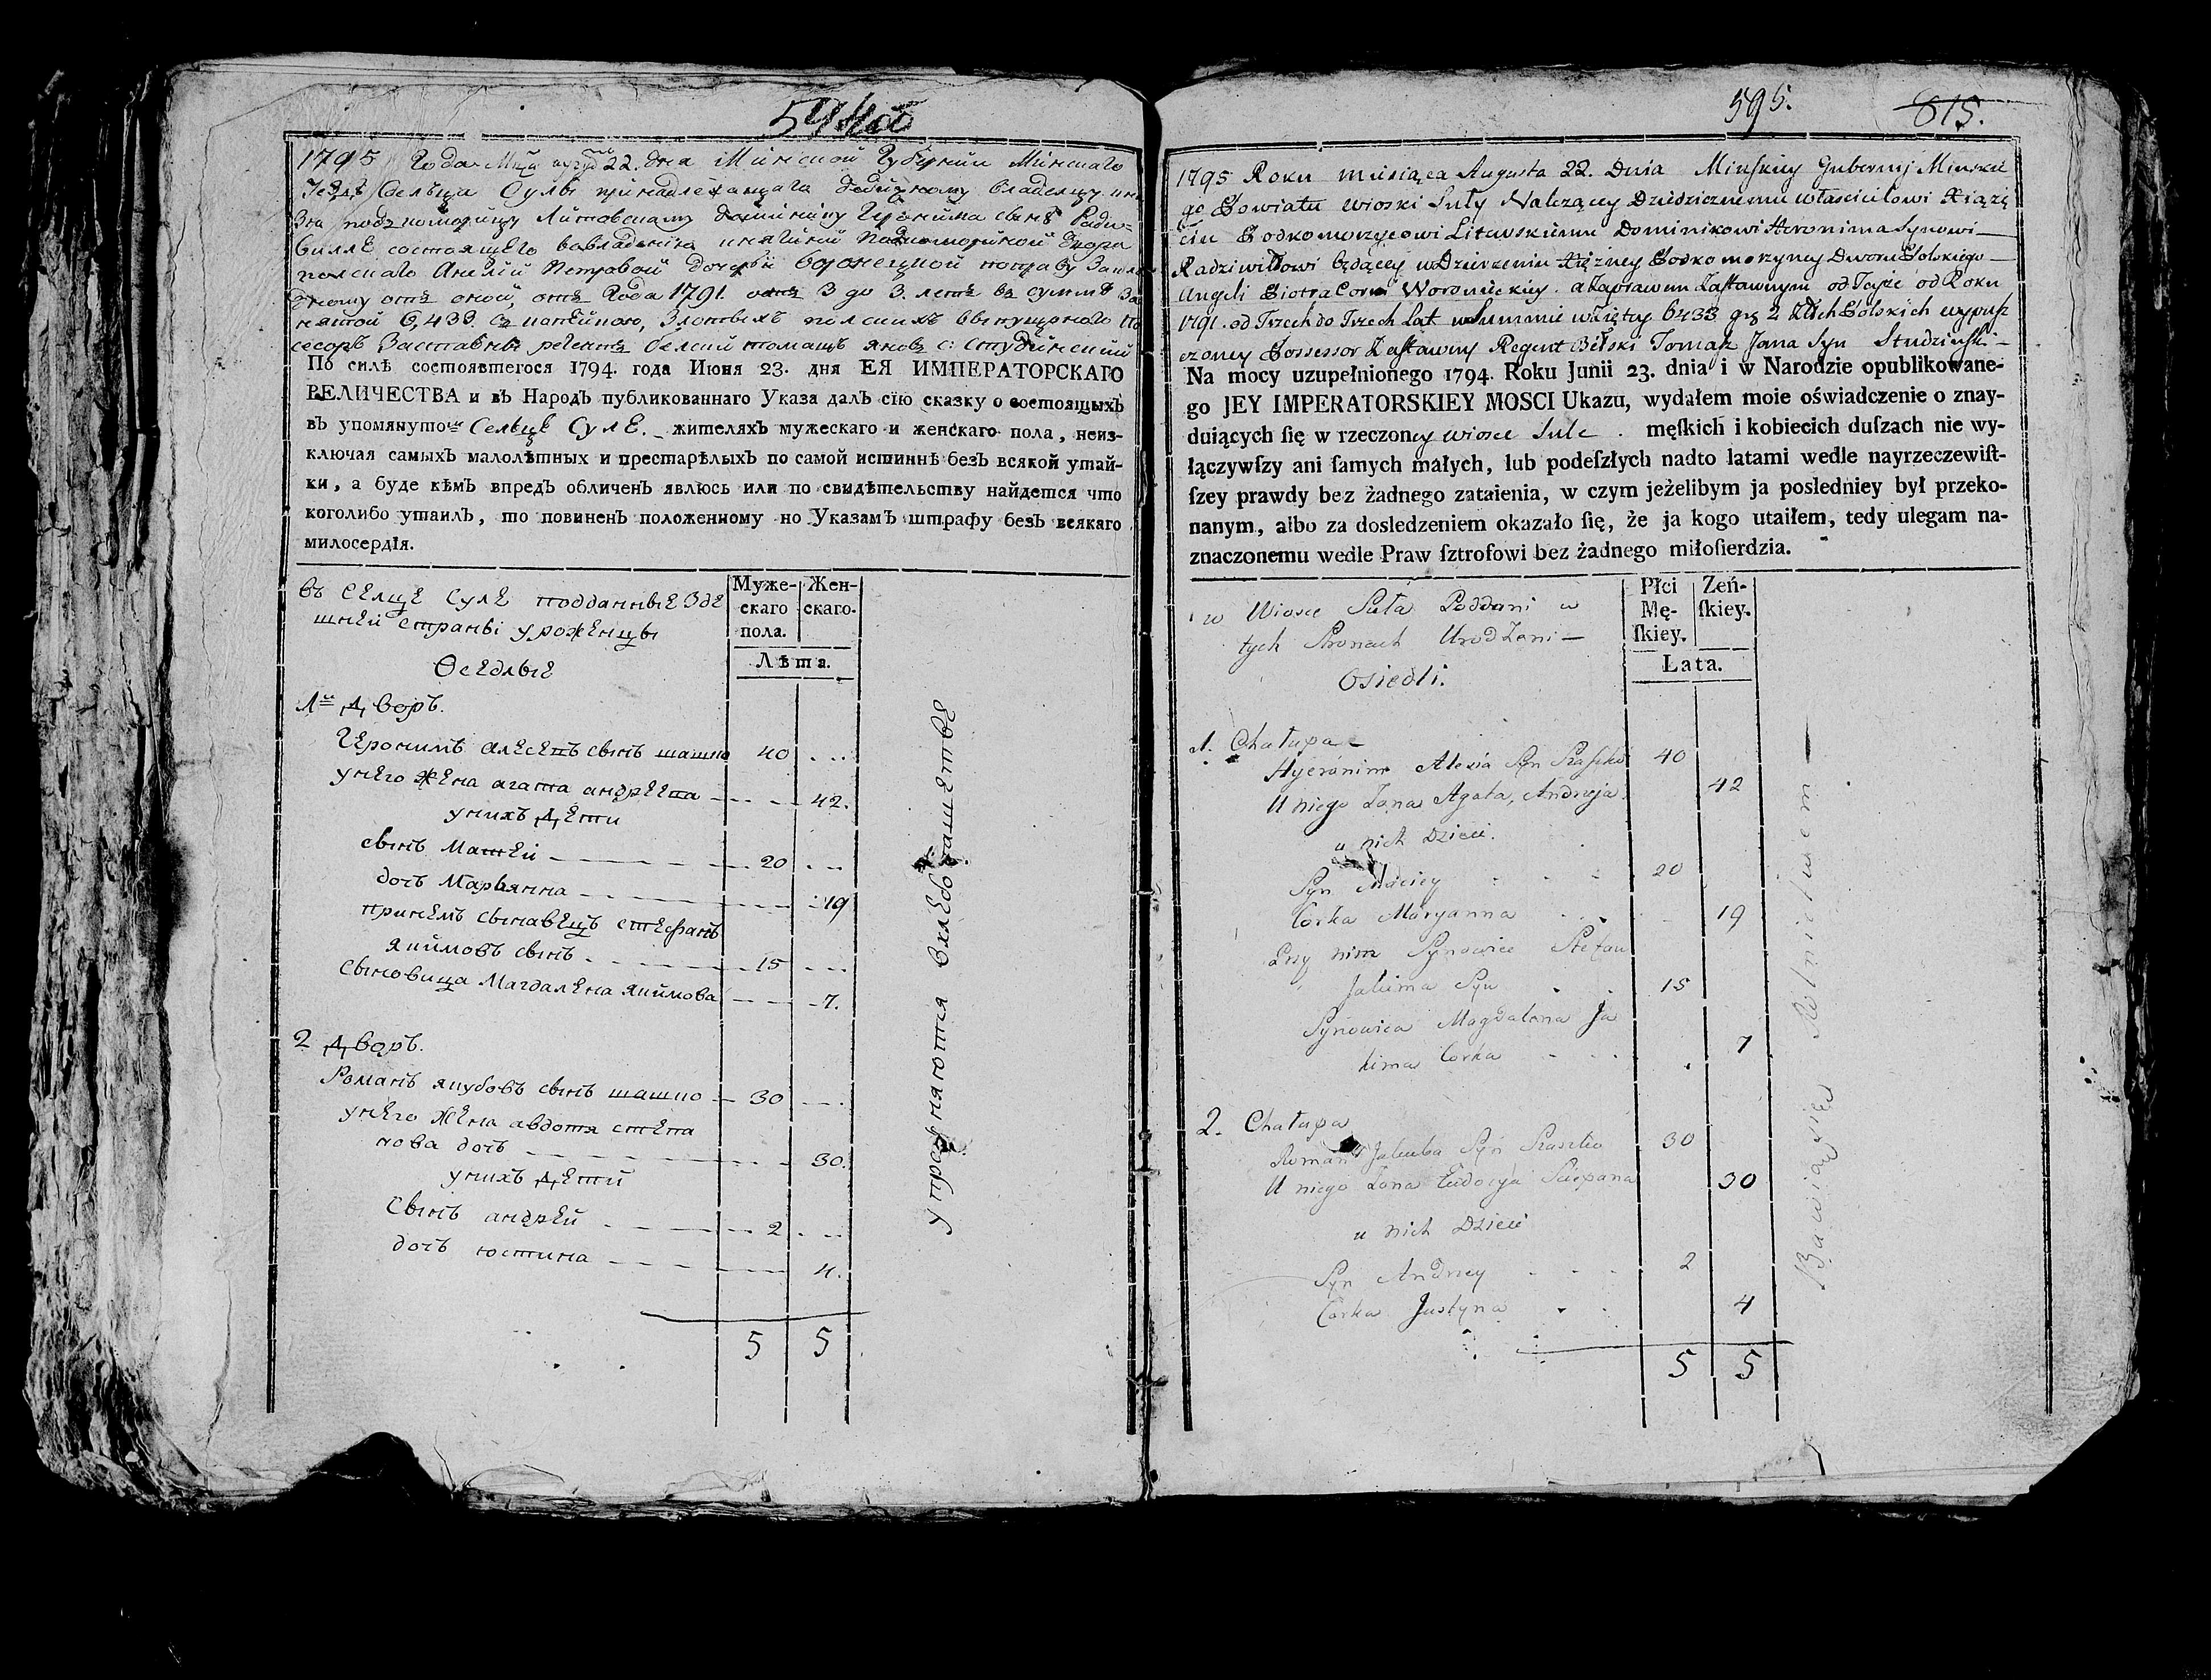 594 об
1795 Года Мца августа 22. дня Минской Губернии Минскаго
Уезда Сельца Сулы принадлежащаго дедичному владельцу кня
Зю подкоморицу Литовскому доминику Геронима сыну Ради-
вилле состоящего вовладении княгини Подкоморжиной двора
полскаго Анелии Петровой дочери Воронецкой поправу Застав
дному отъ оной, отъ Года 1791. отъ 3 до 3. летъ въ сумме За
нятой 6,433. съ копейкою, Злотыхъ полскихъ выпущенаго По
сесоръ Заставны регентъ белски томашъ яновъ с: студзинский
По силѣ состоявшегося 1794. года Июня 23. дня ЕЯ ИМПЕРАТОРСКАГО
ВЕЛИЧЕСТВА и въ Народъ публикованнаго Указа далъ сїю сказку о состоящыхъ
въ упомянутом Сельце Суле. жителяхъ мужескаго и женскаго пола, неиз-
ключая самыхъ малолѣтныхъ и престарѣлыхъ по самой истиннѣ безъ всякой утай-
ки, а буде кѣмъ впредь обличенъ явлюсь или по свидѣтельству найдется что
коголибо утаилъ, то повиненъ положенному по Указамъ штрафу безъ всякаго
милосердїя.
въ Селце Суле подданные зде
шней страны уроженцы
Оседлые
Муже-
скаго
пола.
Жен-
скаго.
Лѣта.
1й дворъ.
Геронимъ алесеевъ сынъ шашко 40
унего жена агата андреева 42.
унихъ дети
сынъ Матей 20
дочь Марьянна 19
принемъ сынавецъ стефанъ
якимовъ сынъ 15
сыновица Магдалена якимова 7.
2 дворъ.
Романъ якубовъ сынъ шашко 30
унего жена авдотя степа
нова дочь 30.
унихъ дети
сынъ андрей 2
дочь юстина 4.
5 5
упражняются вхлебопашетве
595. 815.
1795 Roku miesiąca Augusta 22. Dnia Minskiey Gubernij Minskie
go Powiatu wioski Suły Należącey Dziedzicznemu właścicielowi Xiążę
ciu Podkomorzycowi Litewskiemu Dominikowi Hieronima Synowi
Radziwiłłowi będącey w Dzierżeniu Xiężney Podkomorzyney Dworu Polskiego
Angeli Piotra Corki Woronieckiey. a Zaprawem Zastawnym od Teyże od Roku
1791. od Trzech do Trzech Lat w Summie wziętey 6433 gr 2 Złłch Polskich wypusz
czoney Possessor Zastawny Regent Bilski Tomasz Jana Syn Studziński
Na mocy uzupełnionego 1794. Roku Junii 23. dnia i w Narodzie opublikowane-
go JEY IMPERATORSKIEY MOSCI Ukazu, wydałem moie oświadczenie o znay-
duiących ſię w rzeczoney wiosce Sule. męſkich i kobiecich duſzach nie wy-
łączywſzy ani ſamych małych, lub podeſzłych nadto latami wedle nayrzeczewiſt-
ſzey prawdy bez żadnego zataienia, w czym jeżelibym ja posledniey był przeko-
nanym, albo za dosledzeniem okazało ſię, że ja kogo utaiłem, tedy ulegam na-
znaczonemu wedle Praw ſztrofowi bez żadnego miłoſierdzia.
w Wiosce Suła Poddani w
tych Stronach Urodzeni
Osiedli.
Płci
Mę-
ſkiey.
Zeń-
ſkiey.
Lata.
1. Chałupa
Hyeronim Alexia Syn Szaszko 40
U niego Żona Agata, Andrzeja 42
u nich Dzieci.
Syn Maciey 20
Corka Maryanna 19
Przy nim Synowiec Stefan
Jakima Syn 15
Synowica Magdalena Ja
kima Corka 7
2. Chałupa
Roman Jakuba Syn Szaszko 30
U niego Żona Eudocya Sciepana 30
u nich Dzieci
Syn Andrzey 2
Corka Justyna 4
5 5
Bawią się Rolnictwem